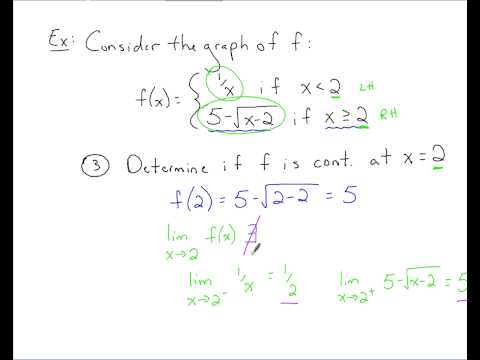 Ex: Consider the graph of f:
f(x) = { 1/x if x < 2 LH
5-√(x-2) if x ≥ 2 RH
③ Determine if f is cont. at x = 2
f(2) = 5-√(2-2) = 5
lim x→2 f(x) ∄
lim x→2⁻ 1/x = 1/2 lim x→2⁺ 5-√(x-2) = 5